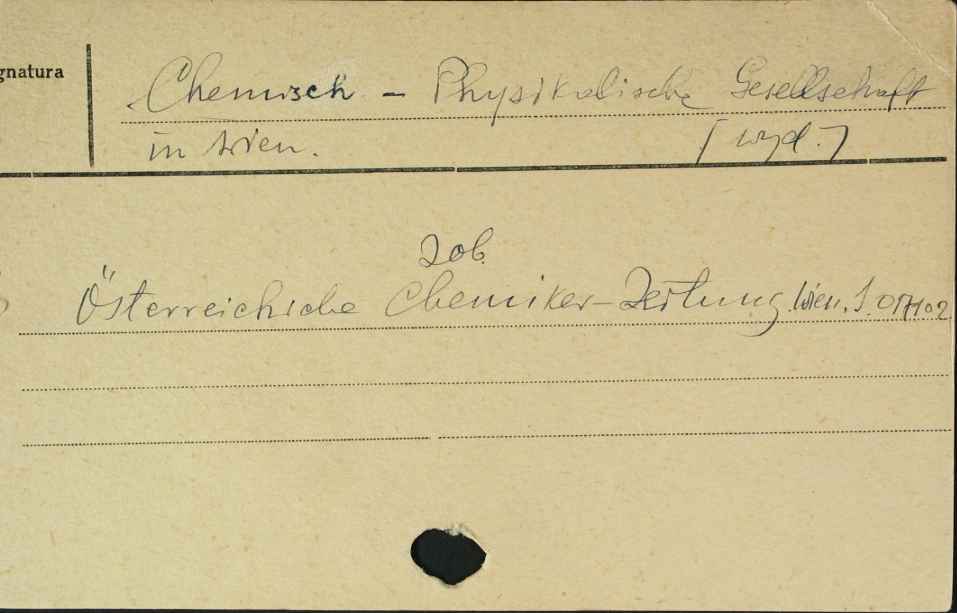 gnatura
Chemisch - Physikalische Gesellschaft
in Wien. [wyd.]
Zob.
Österreichische Chemiker-Zeitung. Wien. S. 017102